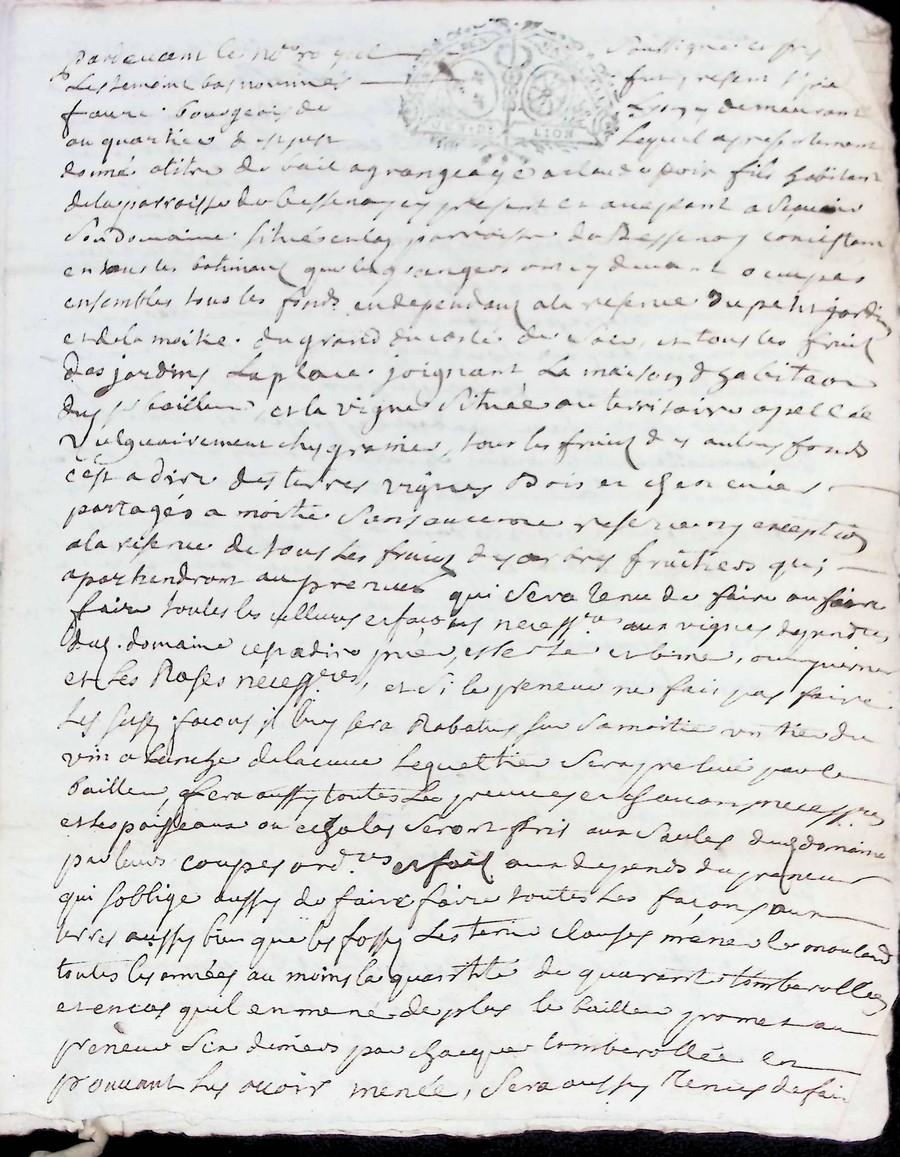 pardevant les no.res royal soussignés et pns
Les temoins bas nommés fut present sr
faure bourgeois de Lyon y demeurant
au quartier de st just Lequel a presentement
donné a titre de bail a grangeage a claude poix fils habitant
de la parroisse de bessenay cy present et acceptant a scavoir
Son domaine situés en lad parroisse de Bessenay consistant
en tous les batimens que les grangers ont cy devant occupés
ensembles tous les fonds en dependant a la reserve du petit jardin
et de la moitié du grand du costé de soir, et tous les fruits
des jardins La place joignant La maison d'habitaon
dud sr bailleur, et la vigne située au territoire apellée
Vulguairement chez granier, tous les fruits des autres fonds
c'est a dire des terres vignes Bois et cheneviers
partagés a moitié sans aucune reserve ny exception
a la reserve de tous Les fruits des arbres fruitiers qui
apartiendront au preneur qui sera tenu de faire ou faire
faire toutes les cultures et façons necess.res aux vignes dependtes
dud. domaine
et Les Roses necess.res, et si le preneur ne fait pas faire
Les susd façons il luy sera Rabatus sur sa moitié un tier du
vin a L'anche de la cuve Lequel tier sera prelevé par le
Bailleur, fera aussy toutes Les preuves et necess.res
et les paisseaux ou echalas seront pris aux saules dud domaine
par leurs coupes ord.res et fait aux depends du preneur
qui s'oblige aussy de faire faire toutes Les façons aux
terres aussy bien que les fossés Les tenir clauses mener le
toutes les années au moins la quantité de quarante tomberollées
et en cas qu'il en mene de plus le bailleur promet au
preneur six deniers par chacque tomberollée en
prouvant Les avoir menée, sera aussy tenus de fair
GEN. DE LION